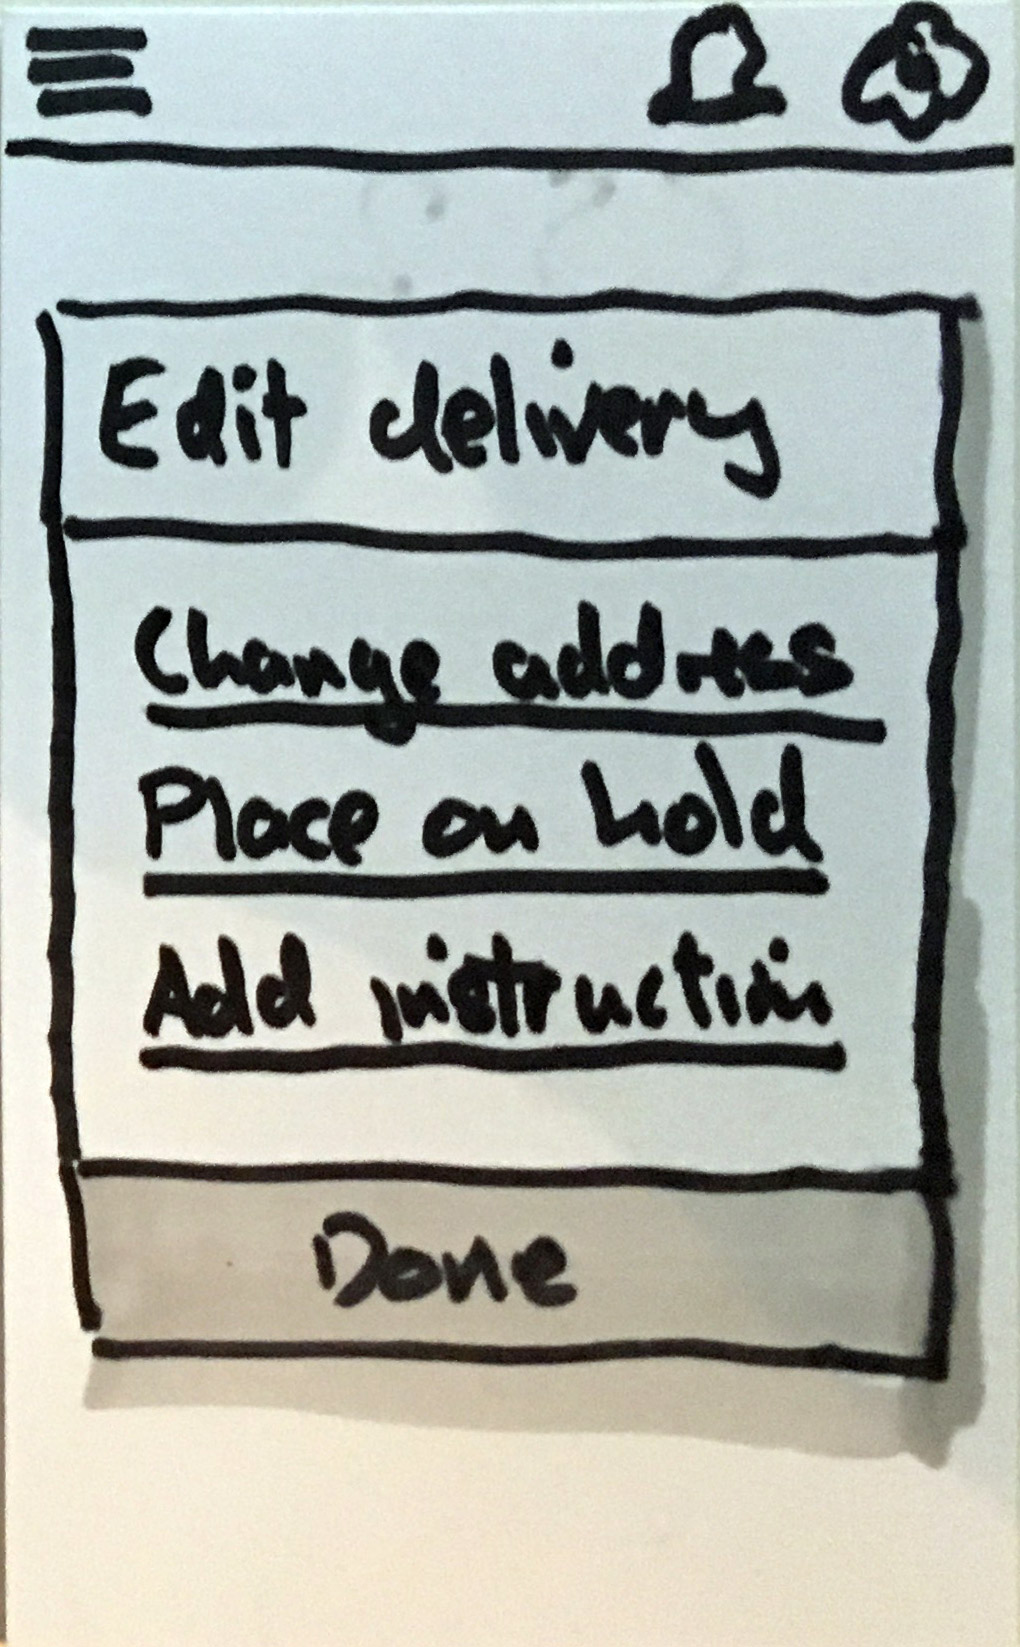 Edit delivery
Change address
Place on hold
Add instruction
Done